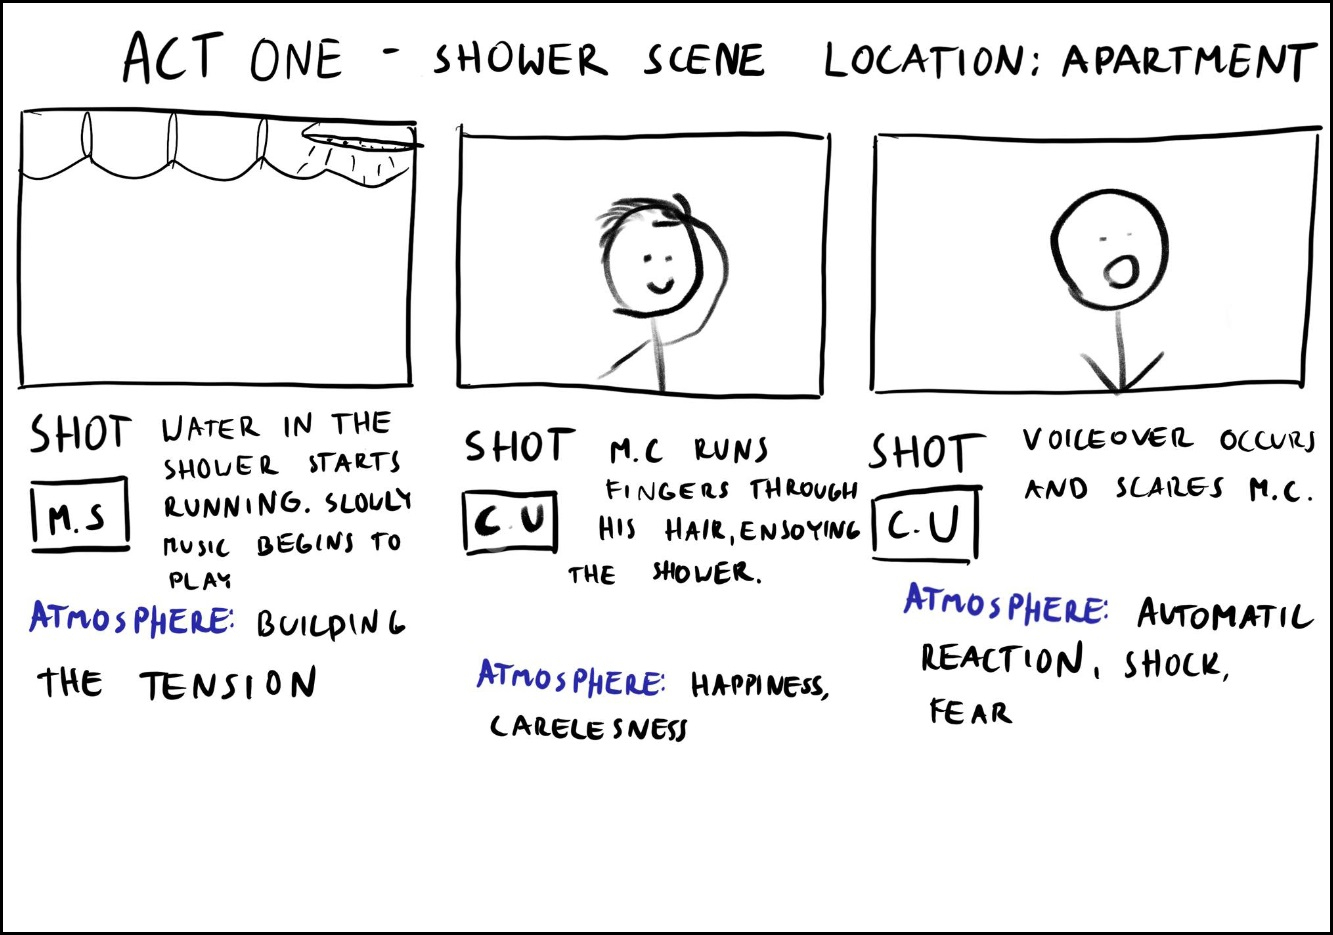 ACT ONE - SHOWER SCENE LOCATION: APARTMENT
SHOT
M.S
WATER IN THE
SHOWER STARTS
RUNNING. SLOWLY
MUSIC BEGINS TO
PLAY
ATMOSPHERE: BUILDING
THE TENSION
SHOT
C.U
M.C RUNS
FINGERS THROUGH
HIS HAIR, ENJOYING
THE SHOWER.
ATMOSPHERE: HAPPINESS,
CARELESNESS
SHOT
C.U
VOICEOVER OCCURS
AND SCARES M.C.
ATMOSPHERE: AUTOMATIC
REACTION, SHOCK,
FEAR